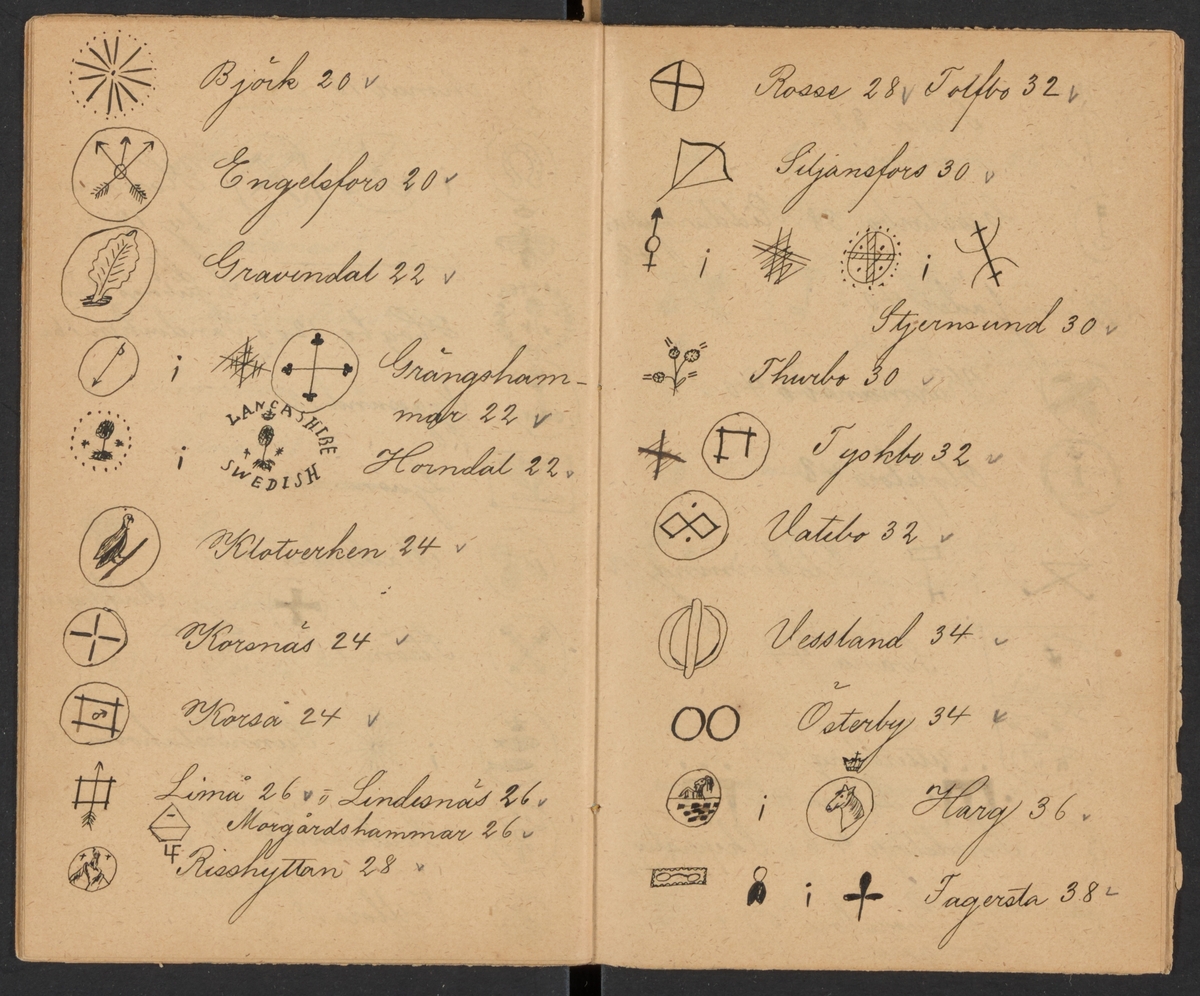 Björk 20 ✓
Engelsfors 20 ✓
Gravendal 22 ✓
i Grängsham-
mar 22 ✓
i LANCASHIRE SWEDISH Horndal 22 ✓
Klotverken 24 ✓
Korsnäs 24 ✓
Korså 24 ✓
Limå 26 ✓ Lindesnäs 26 ✓
Morgårdshammar 26 ✓
Risshyttan 28 ✓
Rosse 28 ✓ Tolfbo 32 ✓
Siljansfors 30 ✓
i i
Stjernsund 30 ✓
Thurbo 30 ✓
Tyskbo 32 ✓
Vatebo 32 ✓
Vessland 34 ✓
Österby 34 ✓
i Harg 36 ✓
i Fagersta 38 ✓